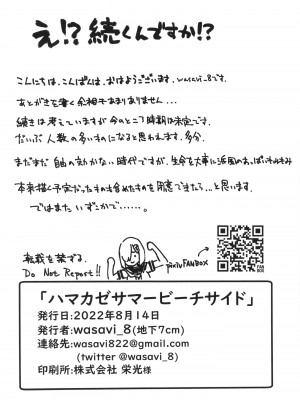 え!? 続くんですか!?
こんにちは、こんばんは、おはようございます、wasavi_8です。
あとがきを書く余裕もあまりありません...
続きは考えていますが今のところ時期は未定です。
だいぶ人数の多いものになると思われます、多分。
まだまだ自由の効かない時代ですが、生命を大事に
本来描く予定だったものも含めたものを用意できたら...と思います。
ではまた いずこかで......。
転載を禁ずる。
Do Not Report!!
pixivFANBOX
FAN
BOX
「ハマカゼサマービーチサイド」
発行日:2022年8月14日
発行者:wasavi_8(地下7cm)
連絡先:wasavi822@gmail.com
(twitter @wasavi_8)
印刷所:株式会社 栄光様